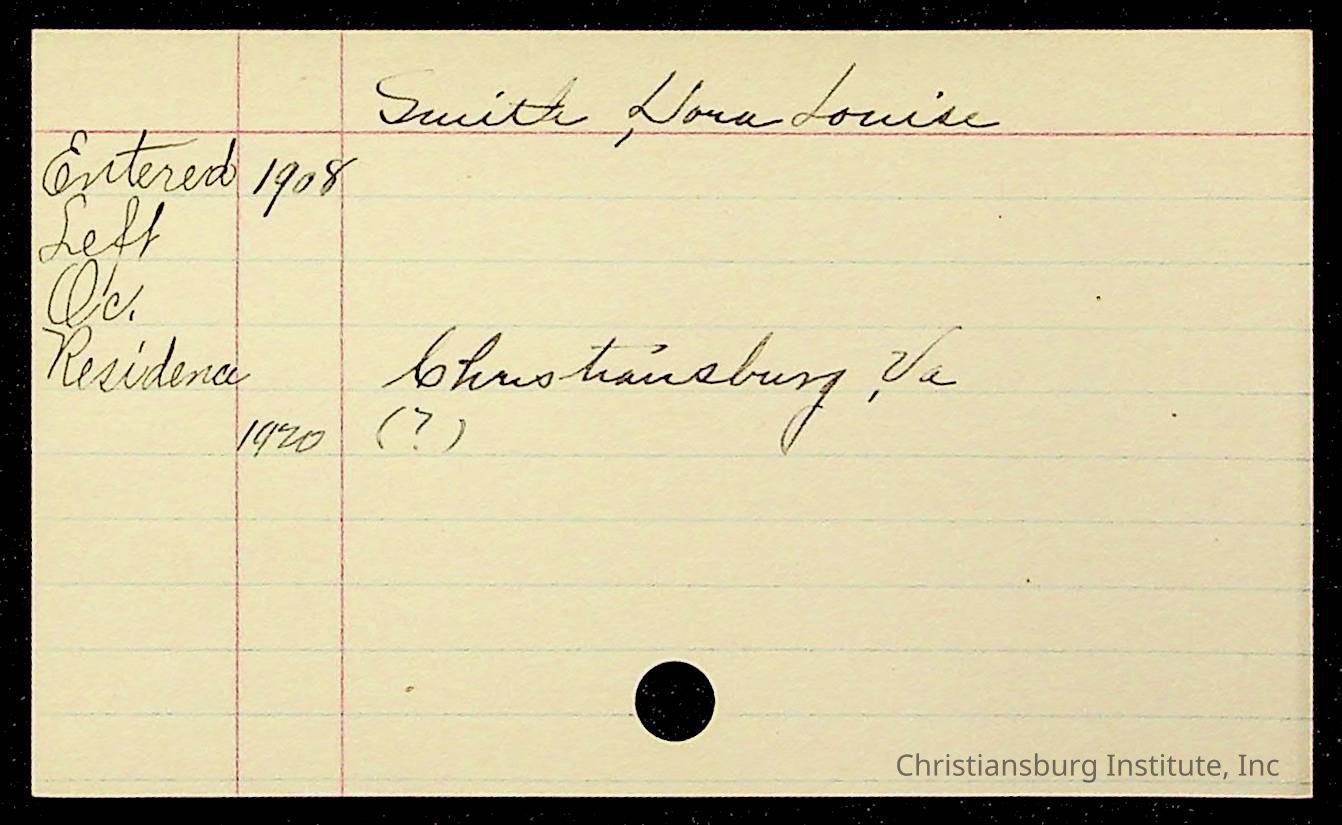 Smith, Dora Louise
Entered 1908
Left
Oc.
Residence Christiansburg, Va
1920 (?)
Christiansburg Institute, Inc